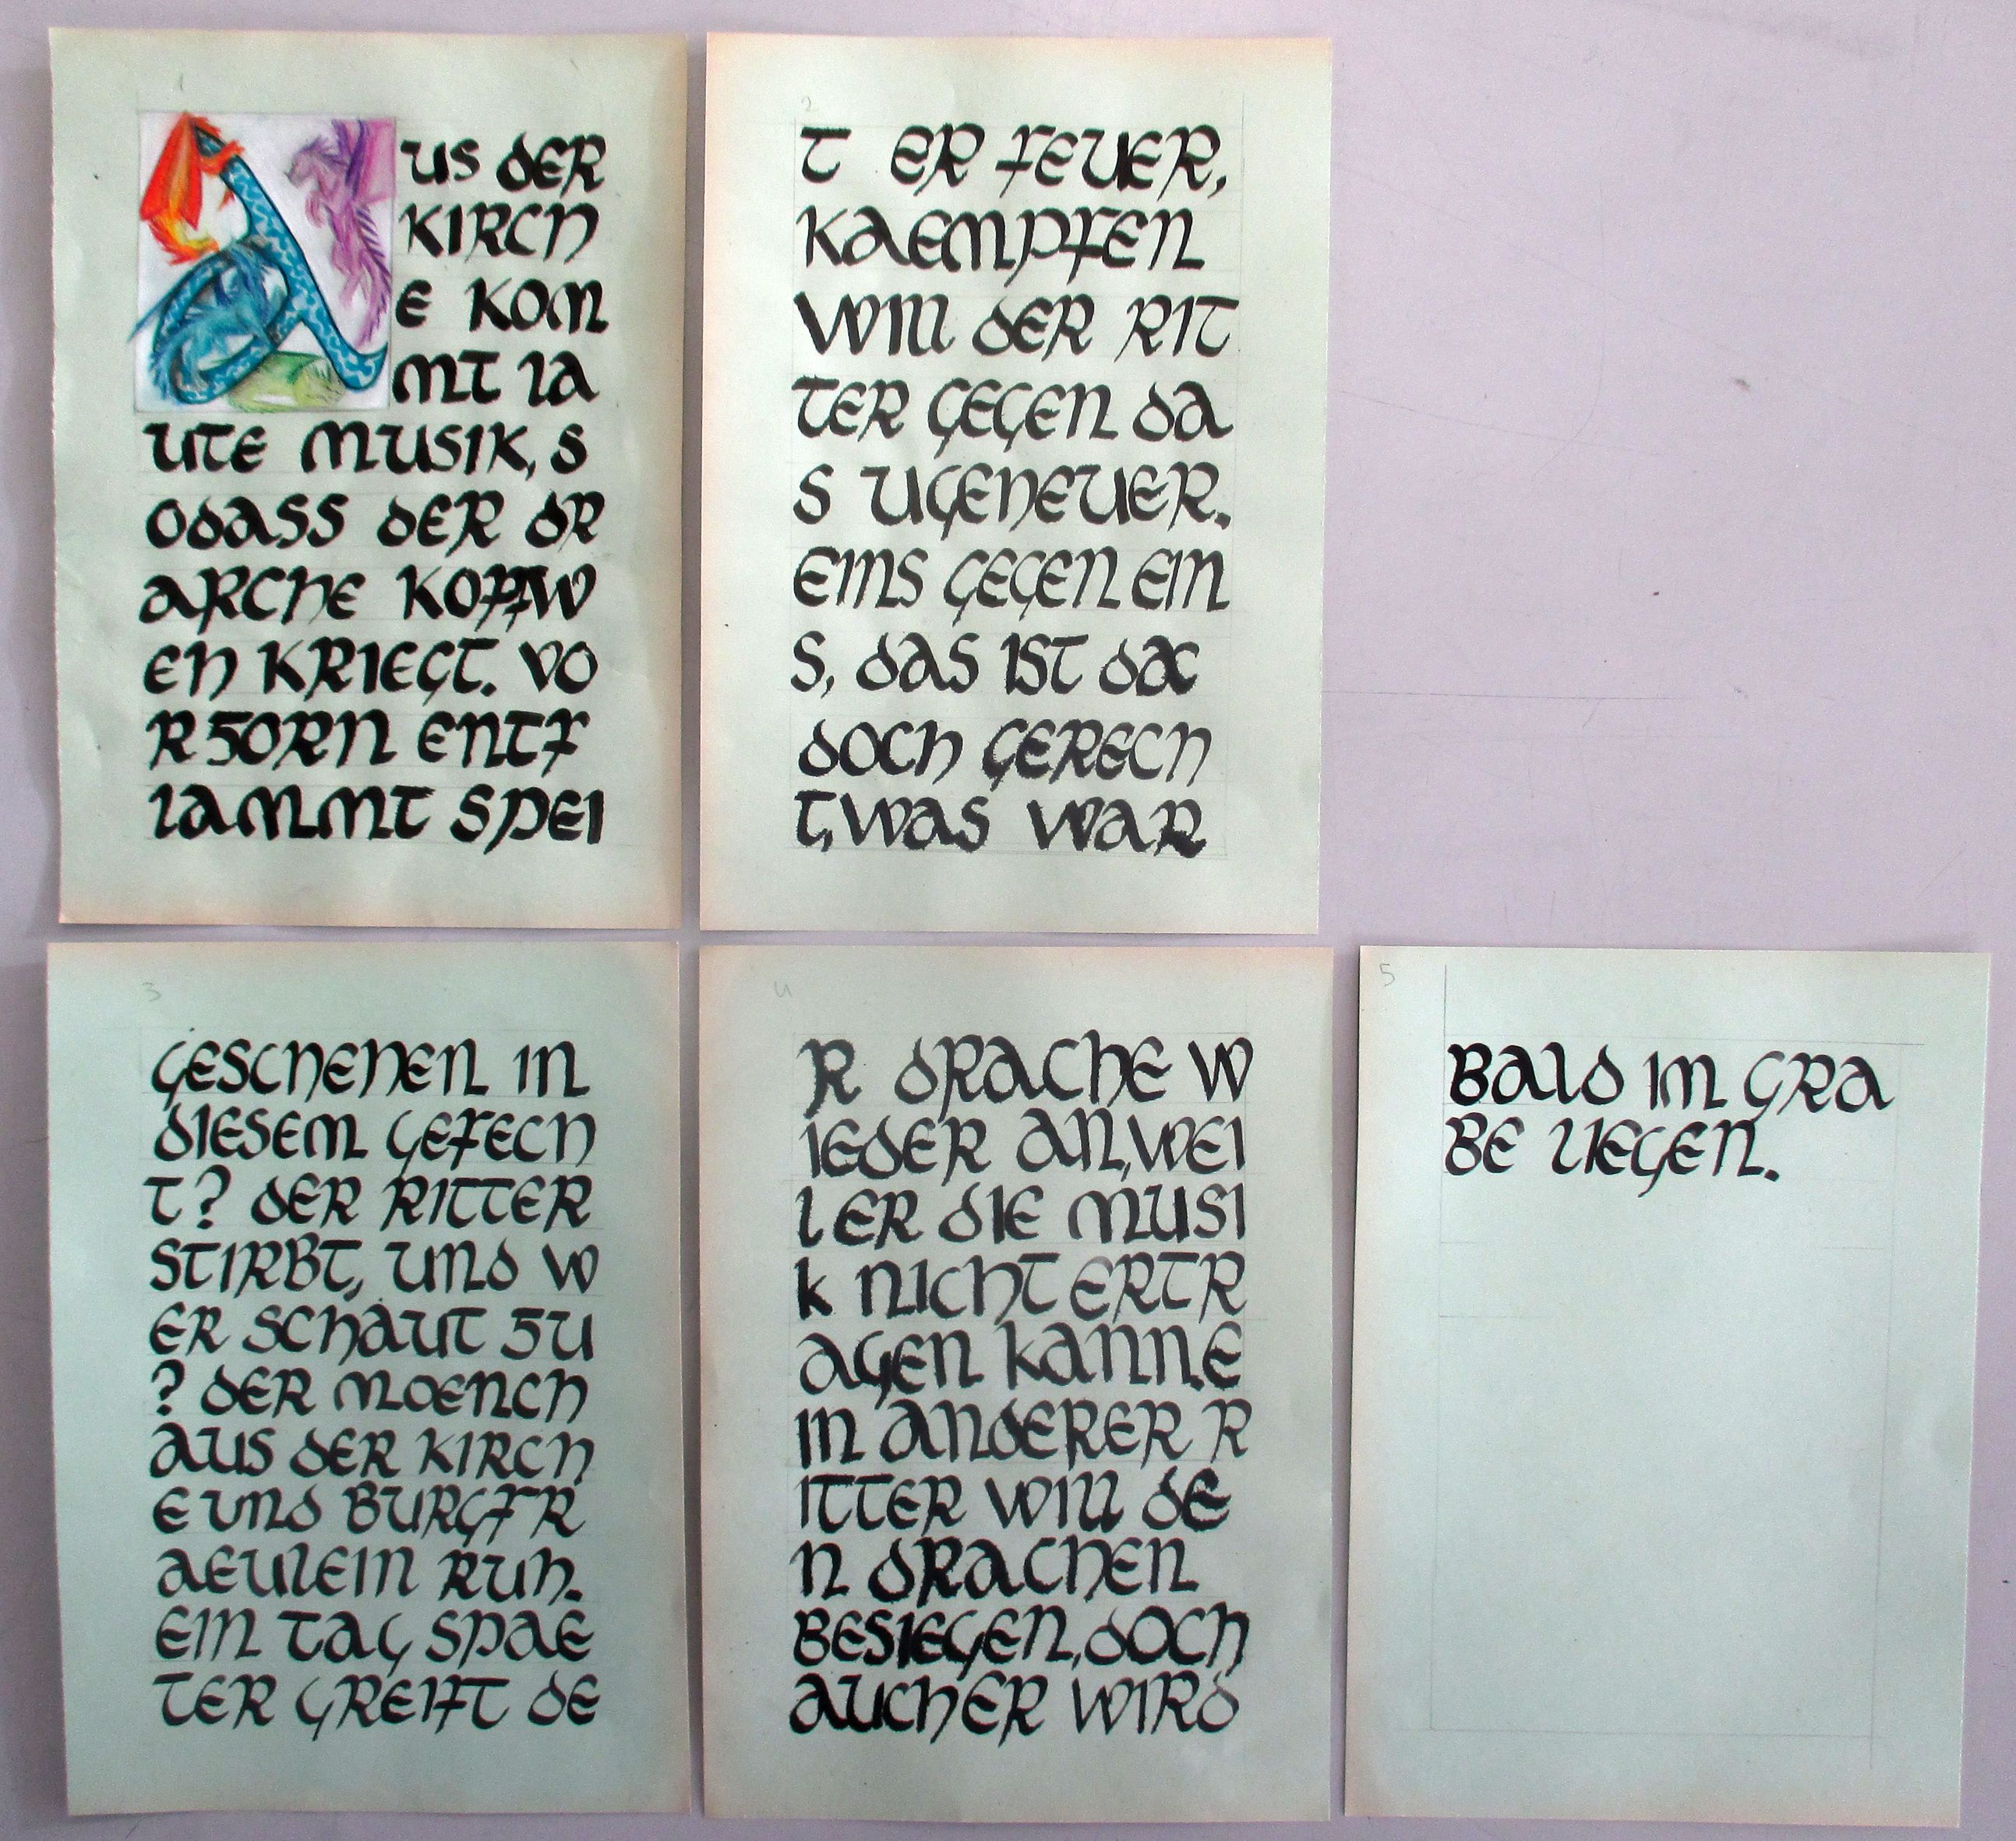 1
AUS DER
KIRCH
E KOM
MT LA
UTE MUSIK, S
ODASS DER DR
ARCHE KOPFW
EH KRIEGT. VO
R ZORN ENTF
LAMMT SPEI
2
T ER FEUER,
KAEMPFEN
WILL DER RIT
TER GEGEN DA
S UGEHEUER.
EINS GEGEN EIN
S, DAS IST DA
DOCH GERECH
T, WAS WAR
3
GESCHEHEN IN
DIESEM GEFECH
T? DER RITTER
STIRBT, UND W
ER SCHAUT ZU
? DER MOENCH
AUS DER KIRCH
E UND BURGFR
AEULEIN RUH.
EIN TAG SPAE
TER GREIFT DE
4
R DRACHE W
IEDER AN, WEI
L ER DIE MUSI
K NICHT ERTR
AGEN KANN. E
IN ANDERER R
ITTER WILL DE
N DRACHEN
BESIEGEN, DOCH
AUCH ER WIRD
5
BALD IM GRA
BE LIEGEN.